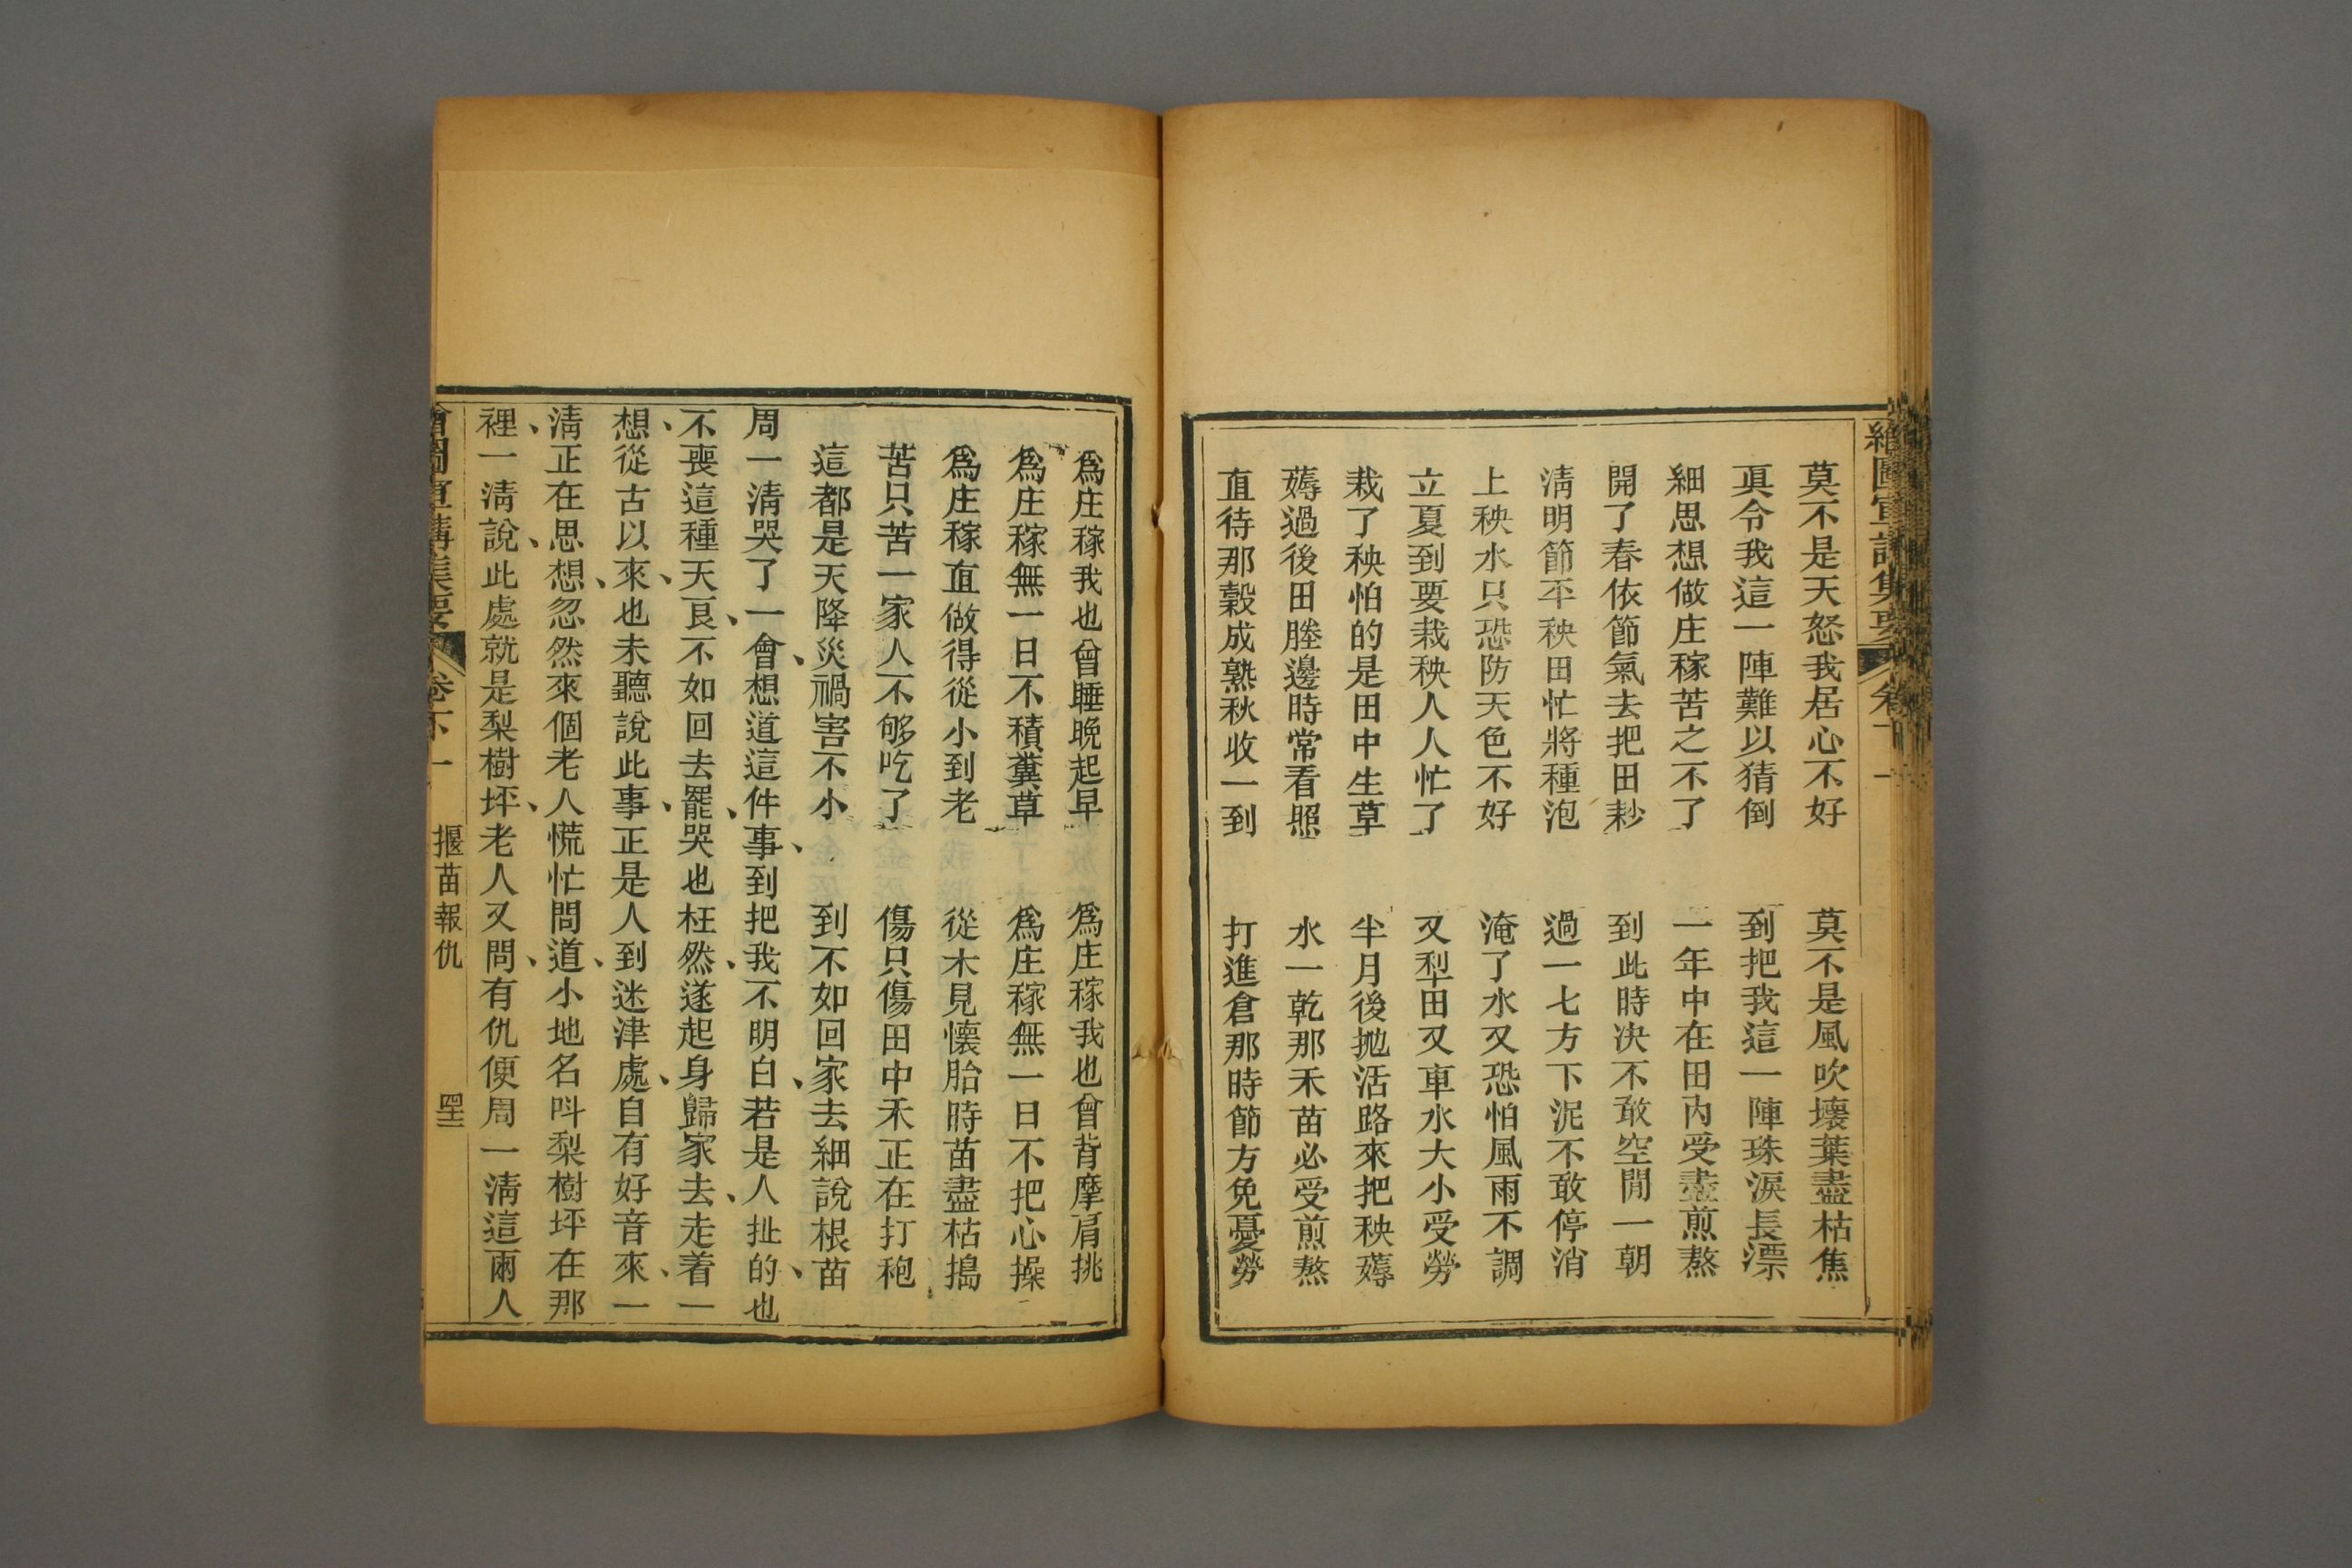 繪圖宣講集要 卷下一
莫不是天怒我居心不好 莫不是風吹壞葉盡枯焦
眞令我這一陣難以猜倒 到把我這一陣珠淚長漂
細思想做庄稼苦之不了 一年中在田內受盡煎熬
開了春依節氣去把田耖 到此時决不敢空閒一朝
淸明節平秧田忙將種泡 過一七方下泥不敢停消
上秧水只恐防天色不好 淹了水又恐怕風雨不調
立夏到要栽秧人人忙了 又犁田又車水大小受勞
栽了秧怕的是田中生草 半月後拋活路來把秧薅
薅過後田塍邊時常看照 水一乾那禾苗必受煎熬
直待那穀成熟秋收一到 打進倉那時節方免憂勞
爲庄稼我也曾睡晚起早 爲庄稼我也曾背摩肩挑
爲庄稼無一日不積糞草 爲庄稼無一日不把心操
爲庄稼直做得從小到老 從木見懐胎時苗盡枯搗
苦只苦一家人不够吃了 傷只傷田中禾正在打袍
這都是天降災禍害不小 到不如回家去細說根苗
周一淸哭了一會、想道這件事、到把我不明白、若是人扯的、也
不喪這種天良、不如回去罷、哭也枉然、遂起身歸家去、走着一
想、從古以來、也未聽說此事、正是人到迷津處、自有好音來、一
淸正在思想、忽然來個老人慌忙問道、小地名呌梨樹坪在那
裡、一淸說、此處就是梨樹坪、老人又問、有仇便周一淸這兩人
繪圖宣講集要 卷下一 揠苗報仇